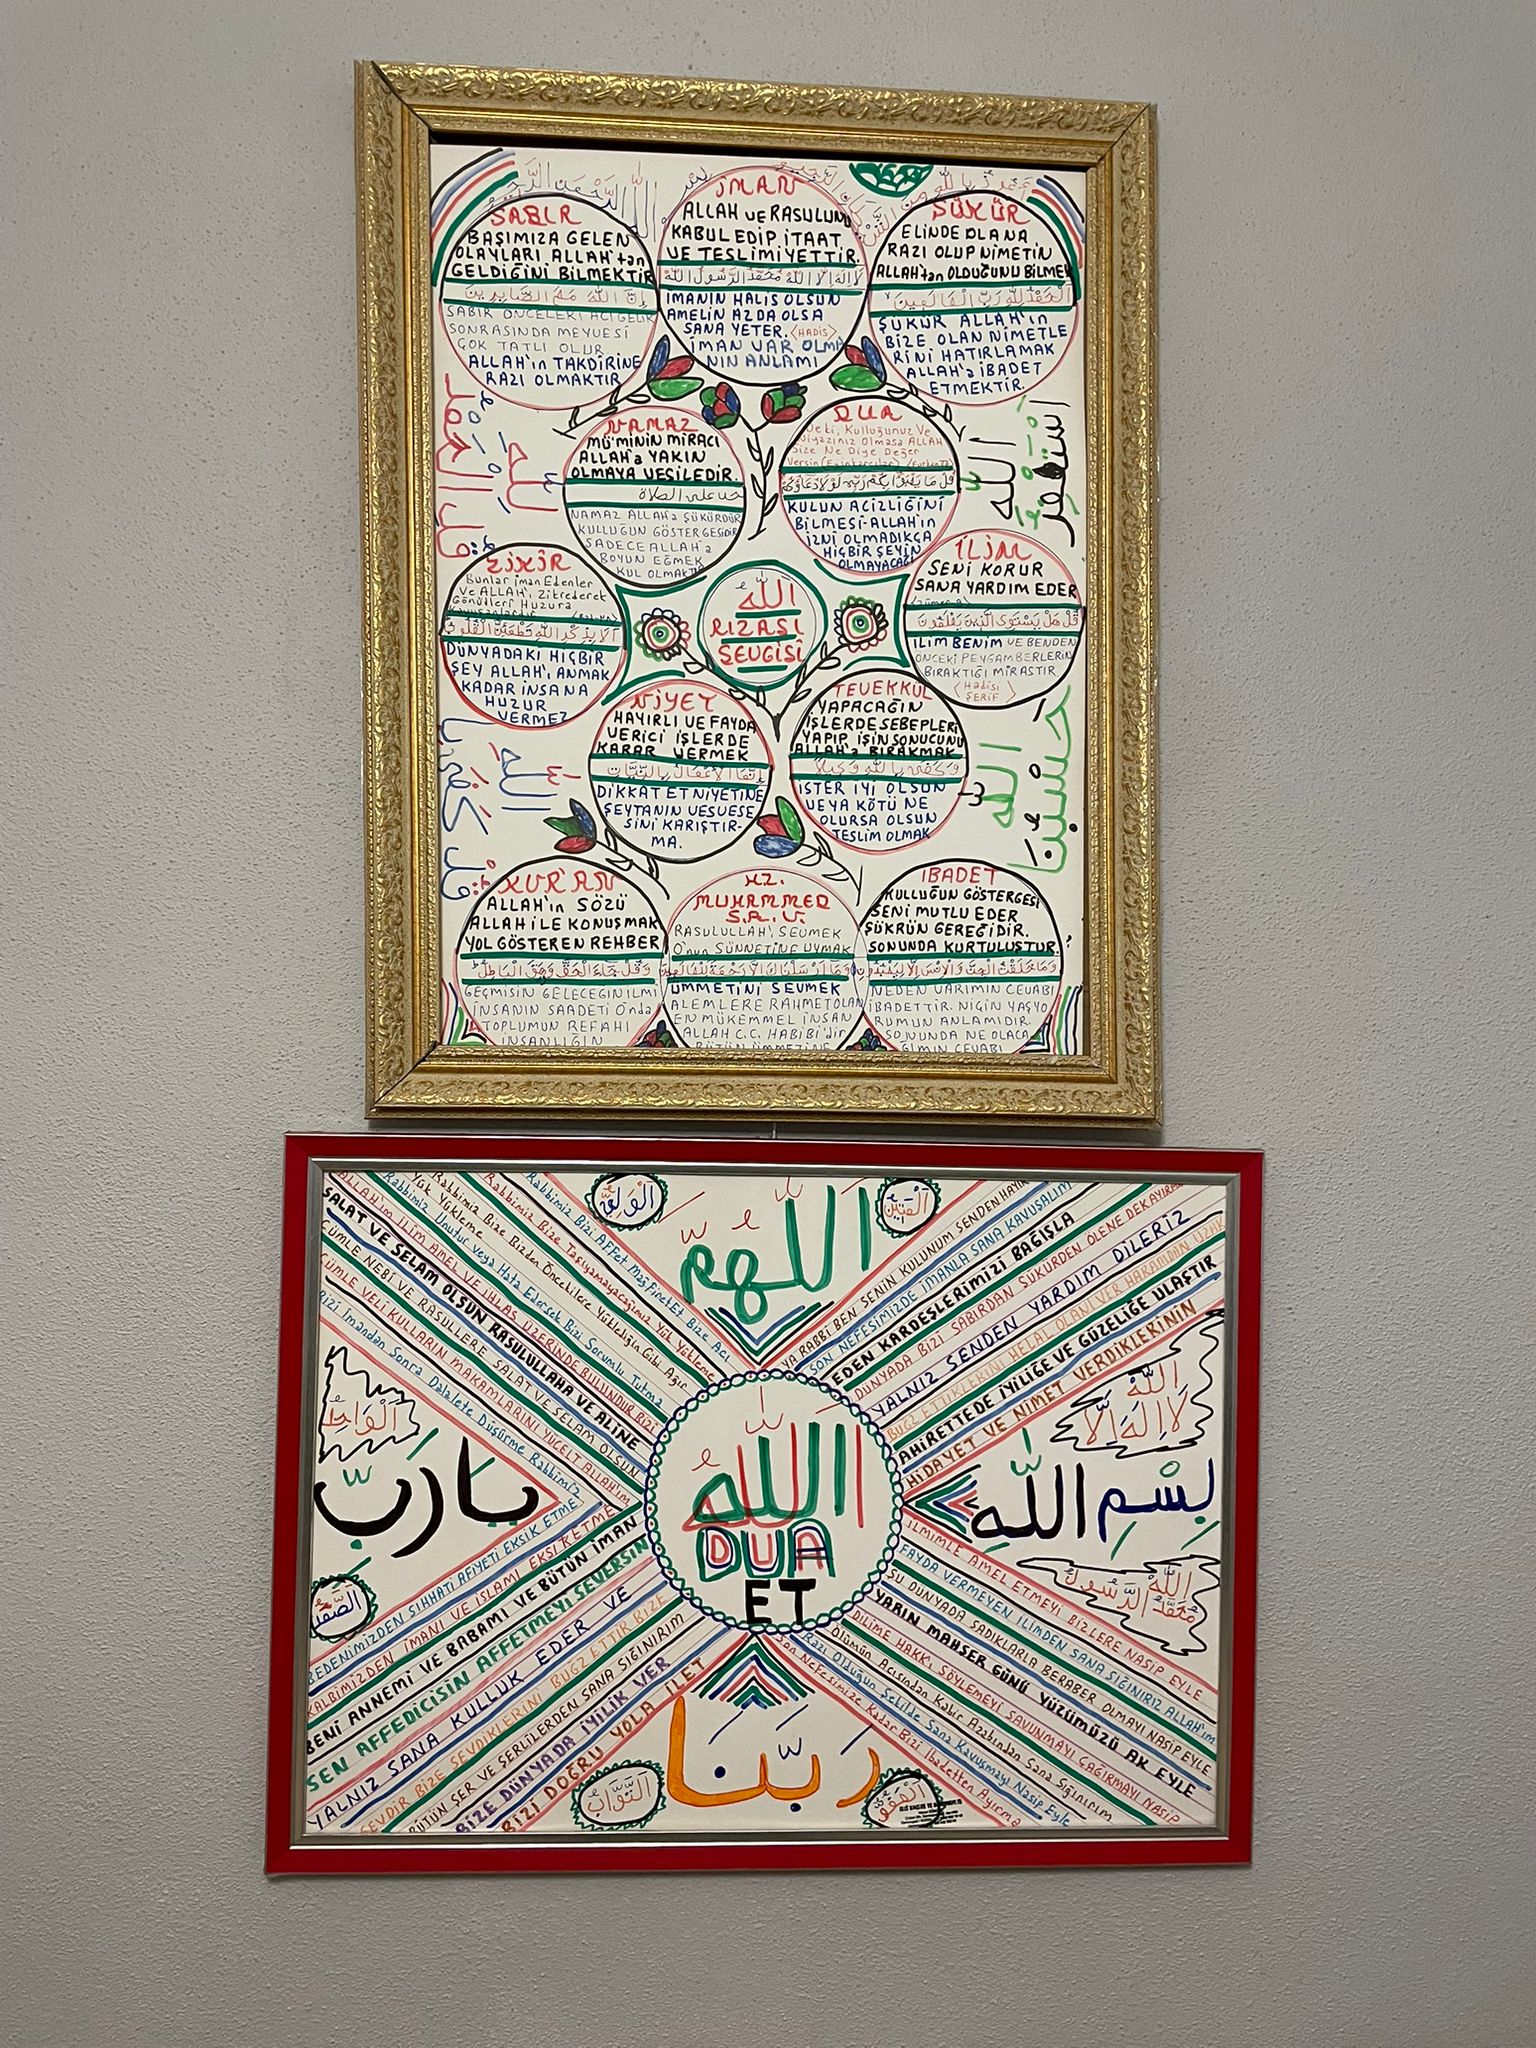 SABIR
BAŞIMIZA GELEN
OLAYLARI ALLAH'tan
GELDİĞİNİ BİLMEKTİR
إِنَّ اللّٰهَ مَعَ الصَّابِرِينَ
SABIR ÖNCELERİ ACI GELİR
SONRASINDA MEYVESİ
ÇOK TATLI OLUR
ALLAH'ın TAKDİRİNE
RAZI OLMAKTIR
İMAN
ALLAH VE RASULUNU
KABUL EDİP İTAAT
VE TESLİMİYETTİR.
لا إله إلا الله محمد الرسول الله
İMANIN HALİS OLSUN
AMELİN AZDA OLSA
SANA YETER. <HADİS>
İMAN VAR OLMA
NIN ANLAMI
ŞÜKÜR
ELİNDE OLANA
RAZI OLUP NİMETİN
ALLAH'tan OLDUĞUNU BİLMEK
ŞÜKÜR ALLAH'ın
BİZE OLAN NİMETLE
RİNİ HATIRLAMAK
ALLAH'a İBADET
ETMEKTİR.
قل الحمد
لله
استغفر
الله
NAMAZ
MÜ'MİNİN MİRACI
ALLAH'a YAKIN
OLMAYA VESİLEDİR.
حى على الصلاة
NAMAZ ALLAH'a ŞÜKÜRDÜR
KULLUĞUN GÖSTERGESİDİR
SADECE ALLAH'a
BOYUN EĞMEK
KUL OLMAKTIR
DUA
De ki, Kulluğunuz Ve
Niyazınız Olmasa ALLAH
Size Ne Diye Değer
Versin
KULUN ACİZLİĞİNİ
BİLMESİ-ALLAH'ın
İZNİ OLMADIKÇA
HİÇBİR ŞEYİN
OLMAYACAĞI
ZİKİR
Bunlar İman Edenler
Ve ALLAH'ı Zikrederek
Gönülleri Huzura
الا بذكر الله تطمئن القلوب
DÜNYADAKİ HİÇBİR
ŞEY ALLAH'ı ANMAK
KADAR İNSANA
HUZUR
VERMEZ
اللّٰه
RIZASI
SEVGİSİ
İLİM
SENİ KORUR
SANA YARDIM EDER
İLİM BENİM VE BENDEN
ÖNCEKİ PEYGAMBERLERİN
BIRAKTIĞI MİRASTIR.
<Hadisi
ŞERİF>
NİYET
HAYIRLI VE FAYDA
VERİCİ İŞLERDE
KARAR VERMEK
DİKKAT ET NİYETİNE
ŞEYTANIN VESVESE
SİNİ KARIŞTIR-
MA.
TEVEKKÜL
YAPACAĞIN
İŞLERDE SEBEPLERİ
YAPIP İŞİN SONUCUNU
ALLAH'a BIRAKMAK
وَكَفَى بِاللّٰهِ وَكِيلاً
İSTER İYİ OLSUN
VEYA KÖTÜ NE
OLURSA OLSUN
TESLİM OLMAK
حسبنا
الله
KUR'AN
ALLAH'ın SÖZÜ
ALLAH İLE KONUŞMAK
YOL GÖSTEREN REHBER
وقل جاء الحق وزهق الباطل
GEÇMİŞİN GELECEĞİN İLMİ
İNSANIN SAADETİ O'nda
TOPLUMUN REFAHI
İNSANLIĞIN
HZ.
MUHAMMED
S.A.V.
RASULULLAH'ı SEVMEK
O'nun SÜNNETİNE UYMAK
وما ارسلناك الا رحمة للعالمين
ÜMMETİNİ SEVMEK
ALEMLERE RAHMET OLAN
EN MÜKEMMEL İNSAN
ALLAH C.C. HABİBİ'dir
BÜTÜN ÜMMETİNE
İBADET
KULLUĞUN GÖSTERGESİ
SENİ MUTLU EDER
ŞÜKRÜN GEREĞİDİR.
SONUNDA KURTULUŞTUR.
وما خلقت الجن والانس الا ليعبدون
NEDEN VARIMIN CEVABI
İBADETTİR. NİÇİN YAŞIYO
RUMUN ANLAMIDIR.
SONUNDA NE OLACA
ĞIMIN CEVABI
اللّٰهمّ
Rabbimiz Bizi Affet Mağfiret Et Bize Acı
Rabbimiz Bize Taşıyamayacağımız Yük Yükleme
Rabbimiz Bize Bizden Öncekilere Yüklediğin Gibi Ağır
Yük Yükleme
Rabbimiz Unutur veya Hata Edersek Bizi Sorumlu Tutma
ALLAH'ım İLİM AMEL VE İHLAS ÜZERİNDE BULUNDUR BİZİ
SALAT VE SELAM OLSUN RASULULLAHA VE ALİNE
CÜMLE NEBİ VE RASULLERE SALAT VE SELAM OLSUN
CÜMLE VELİ KULLARIN MAKAMLARINI YÜCELT ALLAH'IM
Bizi İmandan Sonra Dalalete Düşürme Rabbimiz
YA RABBİ BEN SENİN KULUNUM SENDEN HAYIR
SON NEFESİMİZDE İMANLA SANA KAVUŞALIM
EDEN KARDEŞLERİMİZİ BAĞIŞLA
DÜNYADA BİZİ SABIRDAN ŞÜKÜRDEN ÖLENE DEK AYIRMA
YALNIZ SENDEN YARDIM DİLERİZ
BUĞZ ETTİKLERİNİ HELAL OLANI VER HARAMDAN UZAK
AHİRETTE DE İYİLİĞE VE GÜZELİĞE ULAŞTIR
HİDAYET VE NİMET VERDİKLERİNİN
الواحد
يا ربّ
اللّٰه
DUA
ET
الله
لا إله إلا
بسم الله
الله
محمد الرسول
الصمد
BEDENİMİZDEN SIHHATİ AFİYETİ EKSİK ETME
KALBİMİZDEN İMANI VE İSLAMI EKSİK ETME
BENİ ANNEMİ VE BABAMI VE BÜTÜN İMAN
SEN AFFEDİCİSİN AFFETMEYİ SEVERSİN
YALNIZ SANA KULLUK EDER VE
SEVDİR BİZE SEVDİKLERİNİ BUGZ ETTİR BİZE
BÜTÜN ŞER VE ŞERLİLERDEN SANA SIĞINIRIM
BİZE DÜNYADA İYİLİK VER
BİZİ DOĞRU YOLA İLET
İLMİMLE AMEL ETMEYİ BİZLERE NASİP EYLE
FAYDA VERMEYEN İLİMDEN SANA SIĞINIRIZ ALLAH'IM
ŞU DUNYADA SADIKLARLA BERABER OLMAYI NASİP EYLE
YARIN MAHŞER GÜNÜ YÜZÜMÜZÜ AK EYLE
DİLİME HAKKI SÖYLEMEYİ SAVUNMAYI ÇAĞIRMAYI NASİP
Ölümün Acısından Kabir Azabından Sana Sığınırım
Razı Olduğun Şekilde Sana Kavuşmayı Nasip Eyle
Son Nefesimize Kadar Bizi İbadetten Ayırma
ربّنا
التواب